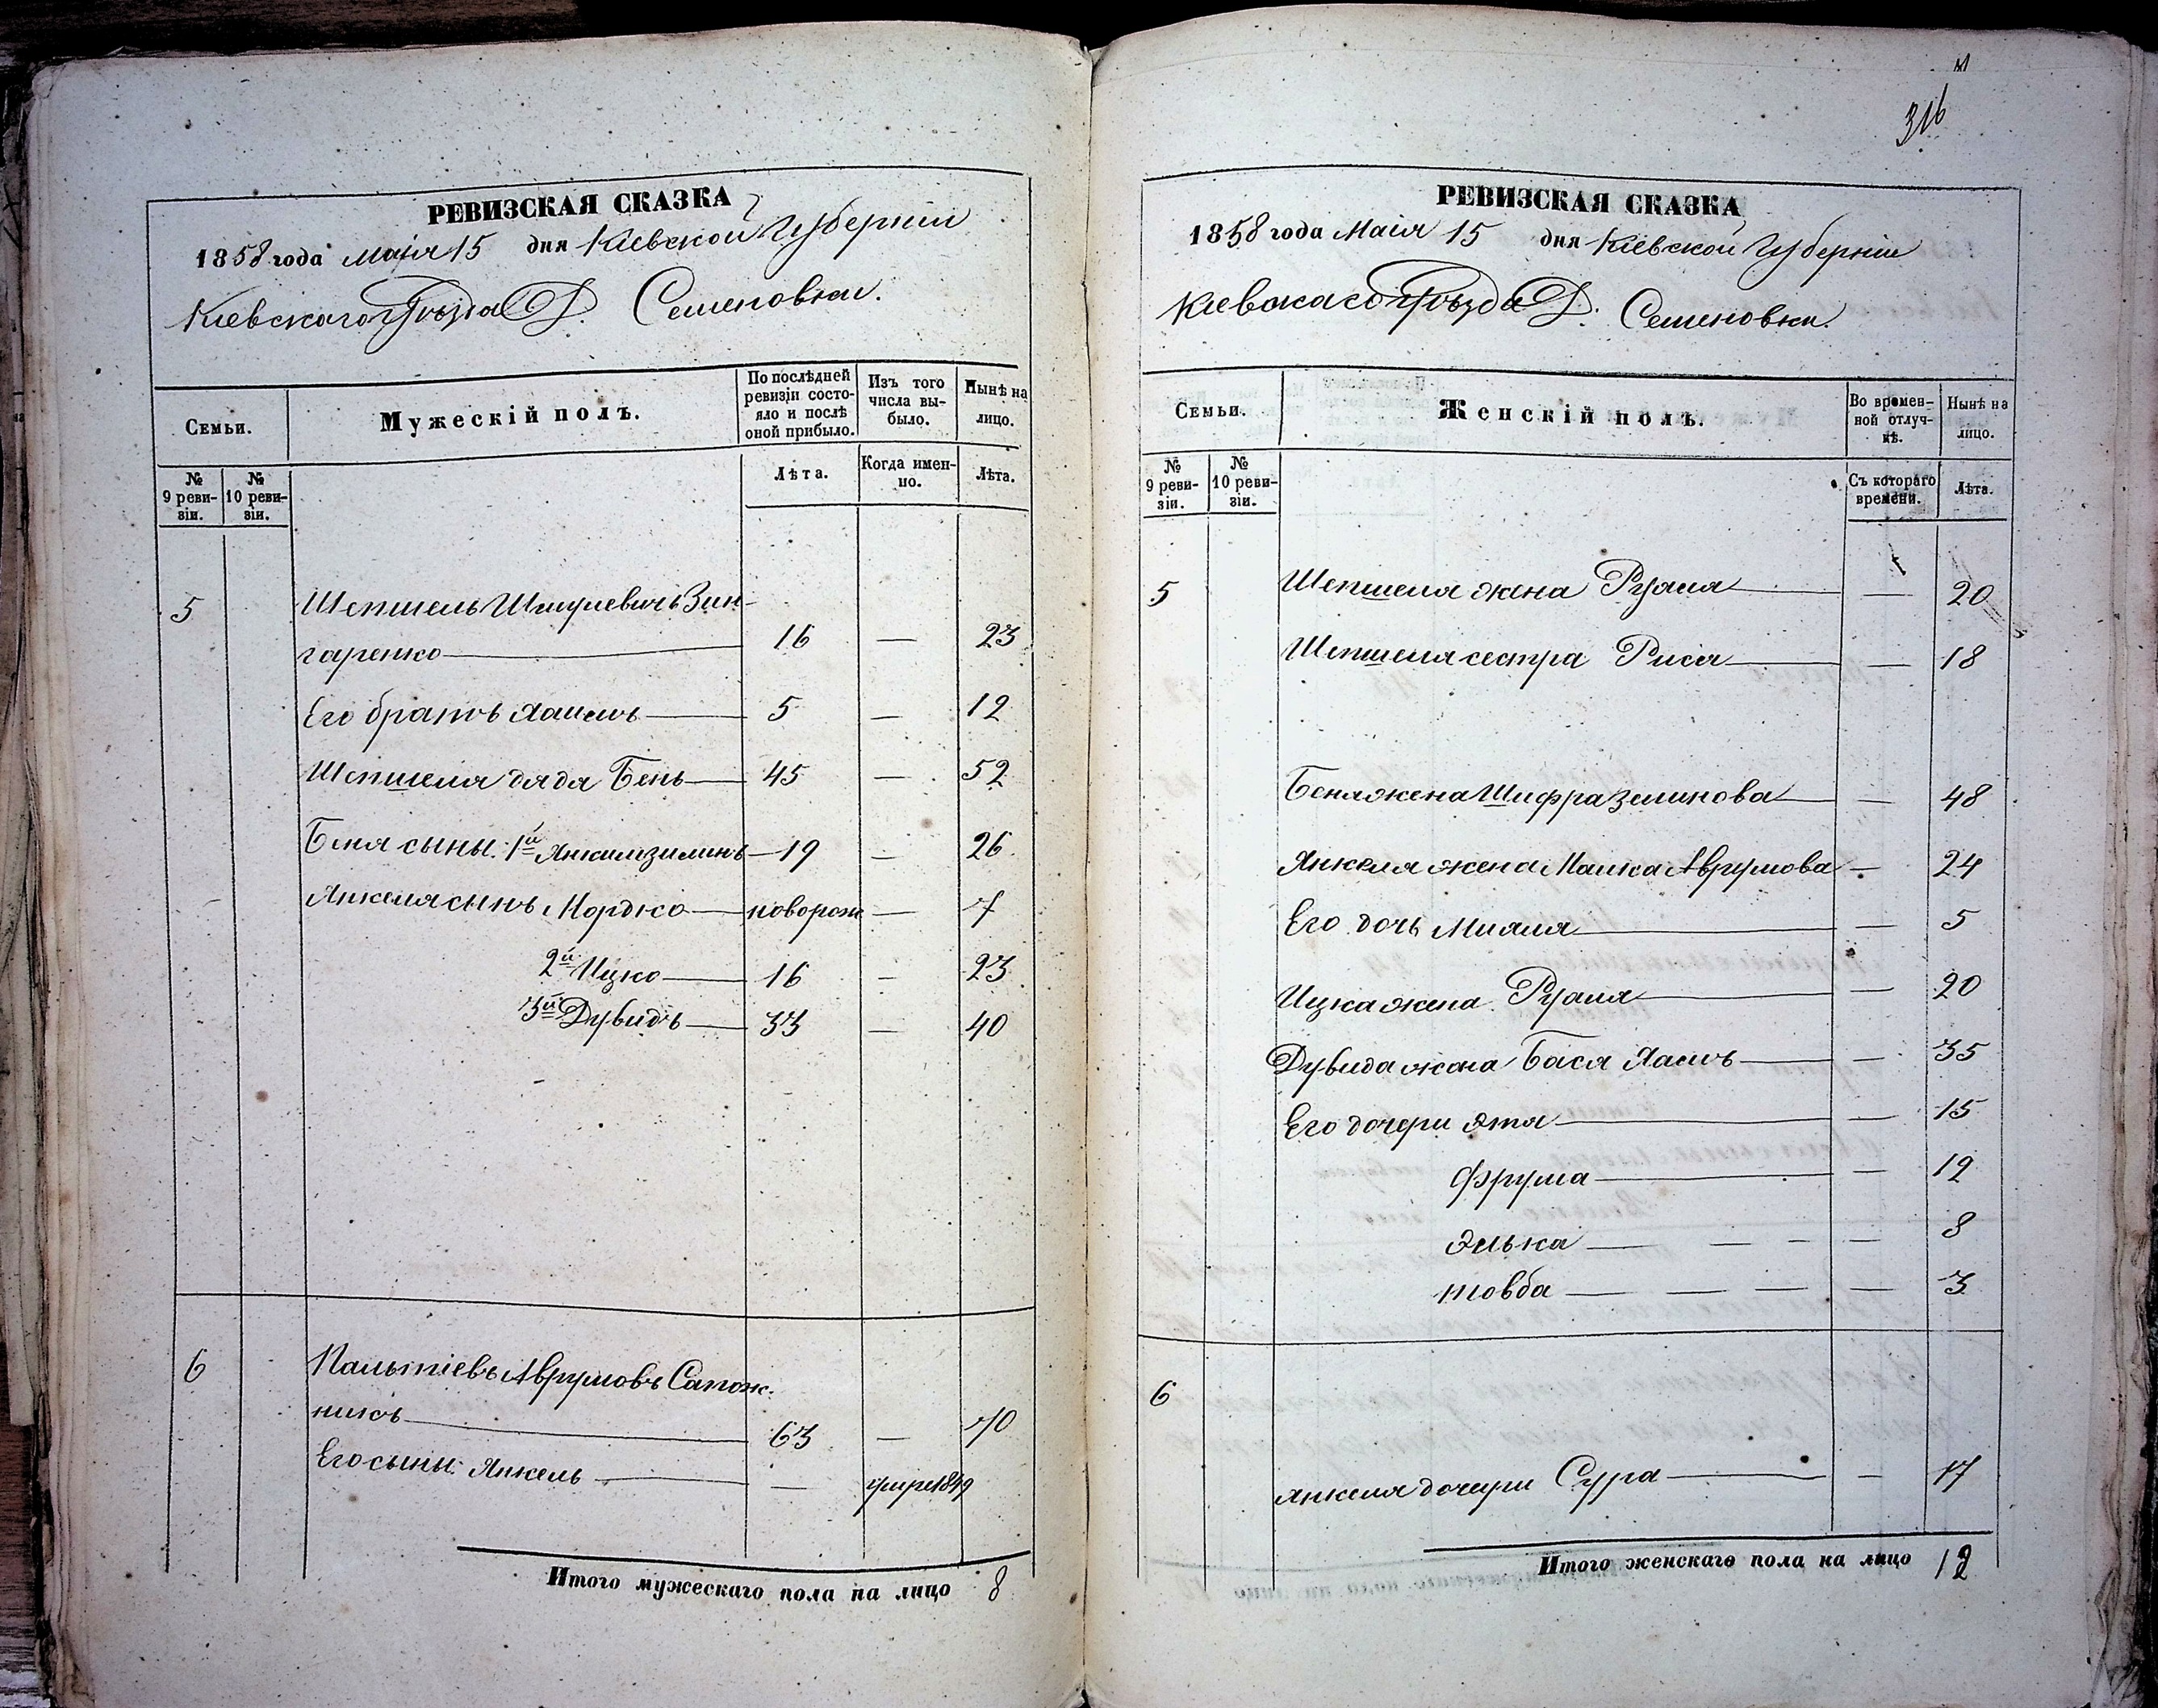 РЕВИЗСКАЯ СКАЗКА
1858 года Маія 15 дня Кіевской Губерніи
Кіевскаго Уѣзда Д. Семеновки.
Семьи.
Мужескій полъ.
По послѣдней ревизіи состояло и послѣ оной прибыло.
Изъ того числа выбыло.
Нынѣ на лицо.
№ 9 ревизіи.
№ 10 ревизіи.
Лѣта.
Когда именно.
Лѣта.
5 Шепшель Шмулевичъ Зин-
гаренко 16 — 23
Его братъ Хаимъ 5 — 12
Шепшеля дядя Бень 45 — 52
Беня сыны. 1й Янкилзилинъ 19 — 26
Янкеля сынъ Мордко новорож — 7
2й Ицко 16 — 23
3й Дувидъ 33 — 40
6 Пальтіевъ Аврумовъ Сапож-
никъ 63 — 70
Его сыны: Янкель — умре 1849
Итого мужескаго пола на лицо 8
316
РЕВИЗСКАЯ СКАЗКА
1858 года Маія 15 дня Кіевской Губерніи
Кіевскаго Уѣзда Д. Семеновки.
Семьи.
Женскій полъ.
Во временной отлучкѣ.
Нынѣ на лицо.
№ 9 ревизіи.
№ 10 ревизіи.
Съ котораго времени.
Лѣта.
5 Шепшеля жена Рухля — 20
Шепшеля сестра Рися — 18
Беня жена Шифра Зелинова — 48
Янкеля жена Малка Аврумова — 24
Его дочь — 5
Ицка жена Рухля — 20
Дувида жена Бася Хаимъ — 35
Его дочери Этя — 15
Фрума — 12
Элька — 8
Товба — 3
6 Янкеля дочери Сура — 17
Итого женскаго пола на лицо 12